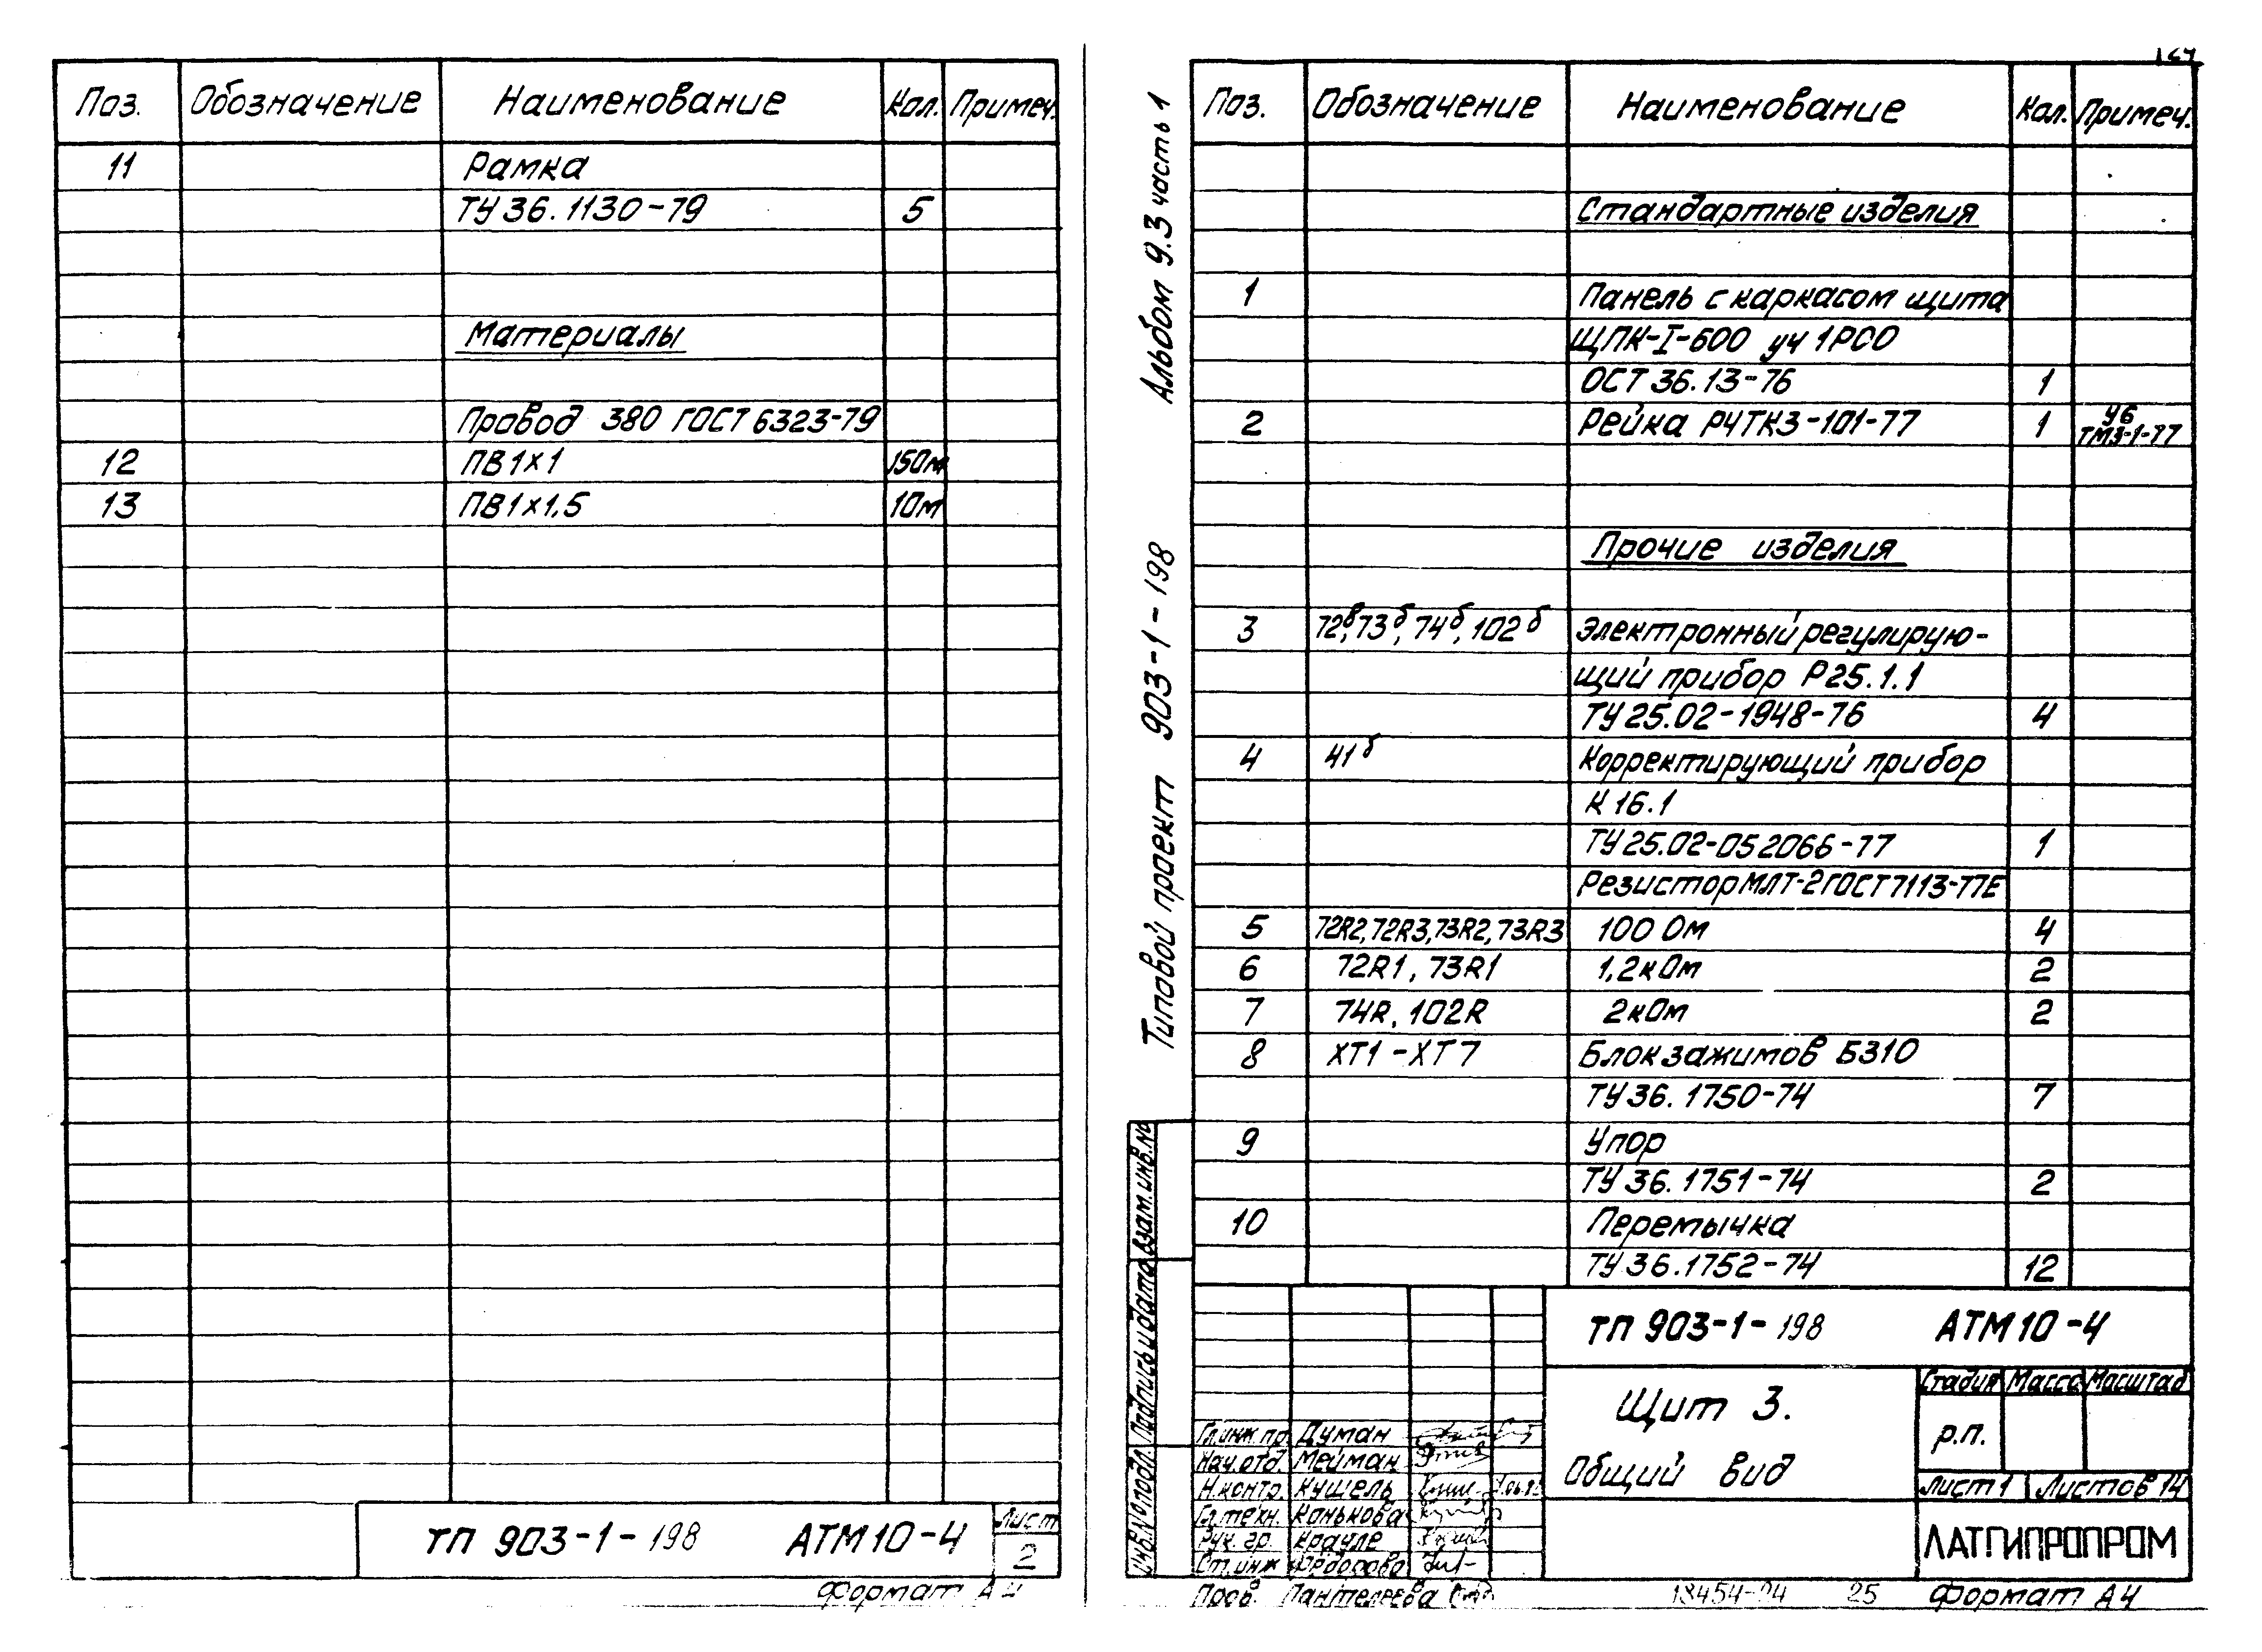 Поз. Обозначение Наименование Кол. Примеч.
11 Рамка
ТУ 36.1130-79 5
Материалы
Провод 380 ГОСТ 6323-79
12 ПВ1х1 150м
13 ПВ1х1,5 10м
ТП 903-1-198 АТМ10-4
Лист
2
Формат А4
Альбом 9.3 часть 1
Типовой проект 903-1-198
Поз. Обозначение Наименование Кол. Примеч.
Стандартные изделия
1 Панель с каркасом щита
ЩПК-I-600 уч 1РОО
ОСТ 36.13-76 1
2 Рейка РЧТК3-101-77 1 У6 ТМ3-1-77
Прочие изделия
3 72в, 73б, 74б, 102б Электронный регулирую-
щий прибор Р25.1.1
ТУ 25.02-1948-76 4
4 41б Корректирующий прибор
К16.1
ТУ 25.02-052066-77 1
Резистор МЛТ-2 ГОСТ 7113-77Е
5 72R2, 72R3, 73R2, 73R3 100 Ом 4
6 72R1, 73R1 1,2кОм 2
7 74R, 102R 2кОм 2
8 ХТ1-ХТ7 Блок зажимов БЗ10
ТУ 36.1750-74 7
9 Упор
ТУ 36.1751-74 2
10 Перемычка
ТУ 36.1752-74 12
Инв.№ подл. Подпись и дата Взам.инв.№
ТП 903-1-198 АТМ10-4
Щит 3.
Общий вид
Стадия Масса Масштаб
р.п.
Лист 1 Листов 14
ЛАТГИПРОПРОМ
Гл.инж.пр. Думан
Нач.отд. Мейман
Н.контр. Кушель
Гл.техн. Конькова
Рук. гр. Крауле
Ст.инж Фёдорова
Пров. Пантелеева
18454-24 25 Формат А4